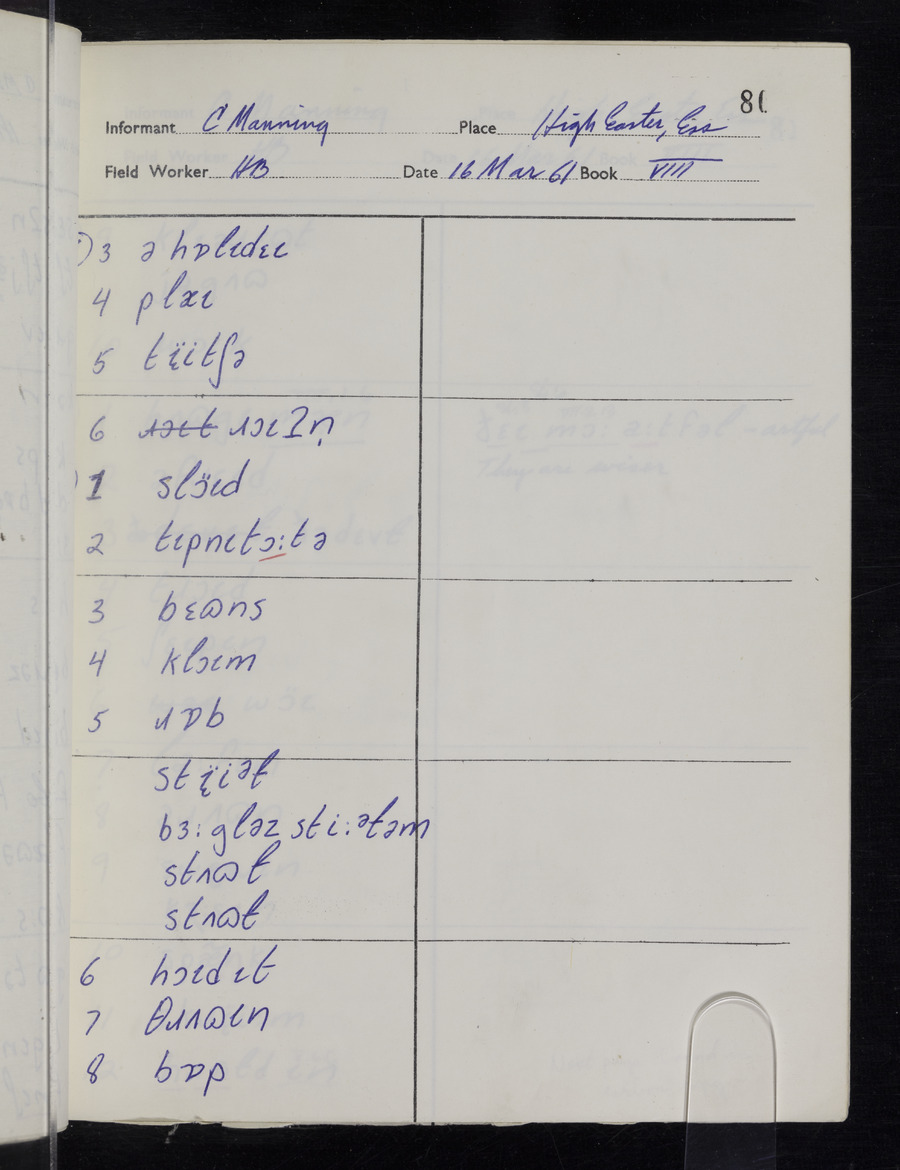 81
Informant C Manning Place High Easter, Ess
Field Worker HB Date 16 Mar 61 Book VIII
3 ə hɒlɩdɛɩ
4 plæɩ
5 tï̞itʃə
6 ɹɔɩt ɹɔɩʔn̩
1 slɔ̈ɩd
2 tɩpnɩtɔːtə
3 bɛɷns
4 klɔɩm
5 ɹɒb
stï̞iəɫ
bɜːgləz stiːəɫəm
stʌɷɫ
stʌɷɫ
6 hɔɩdɩt
7 θɹʌɷɩn
8 bɒp